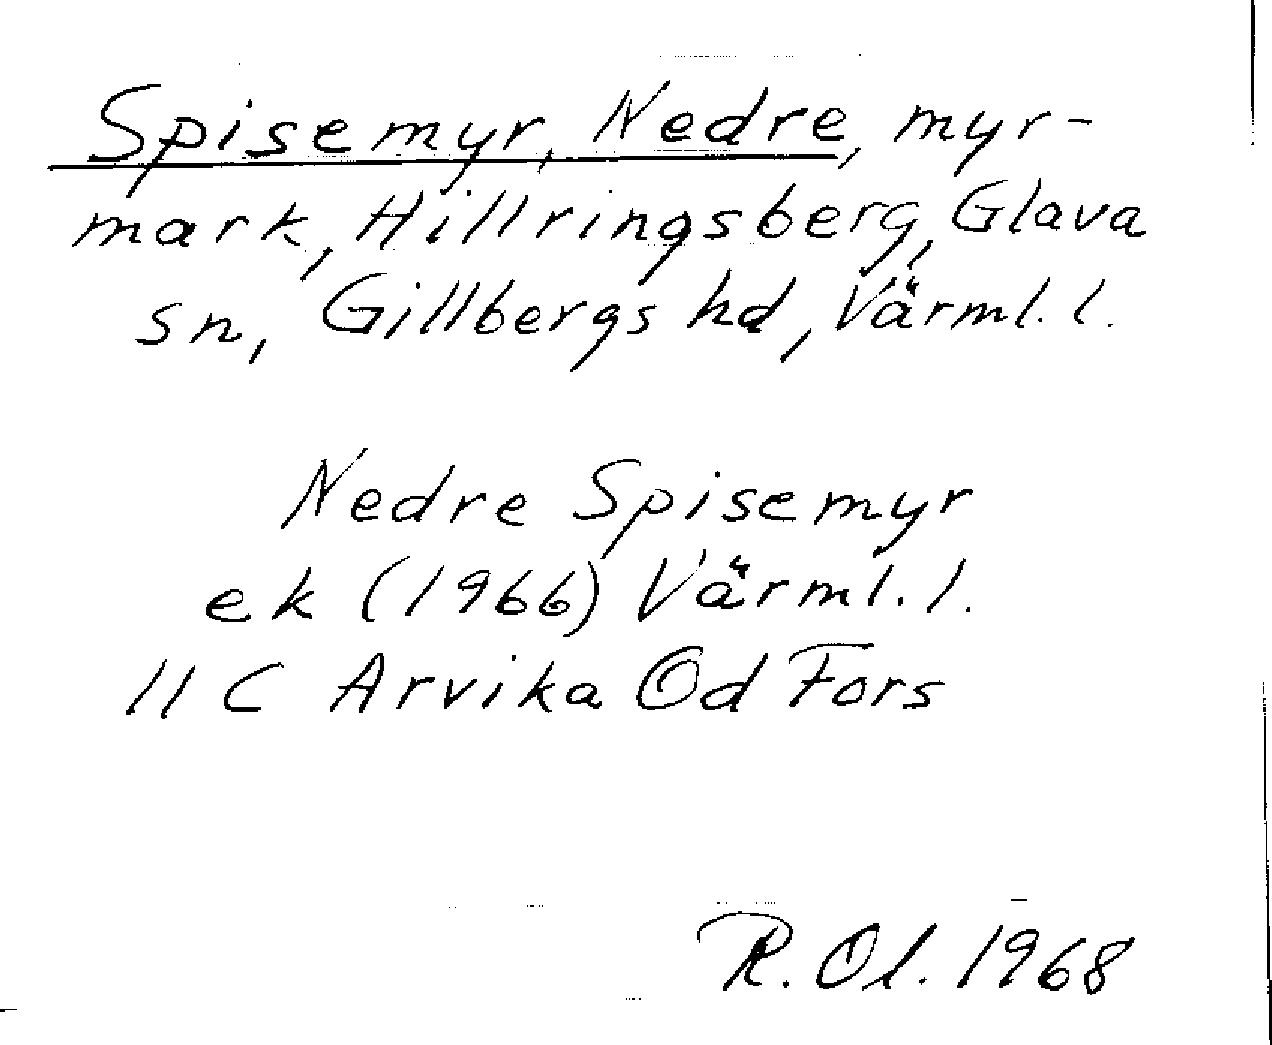 Spisemyr, Nedre, myr-
mark, Hillringsberg, Glava
sn, Gillbergs hd, Värml. l.
Nedre Spisemyr
ek (1966) Värml. l.
11 C Arvika Öd Fors
R. Ol. 1968